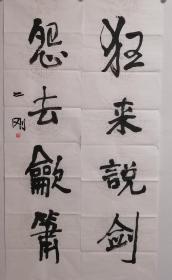 狂来説剑
怨去龡箫
二刚